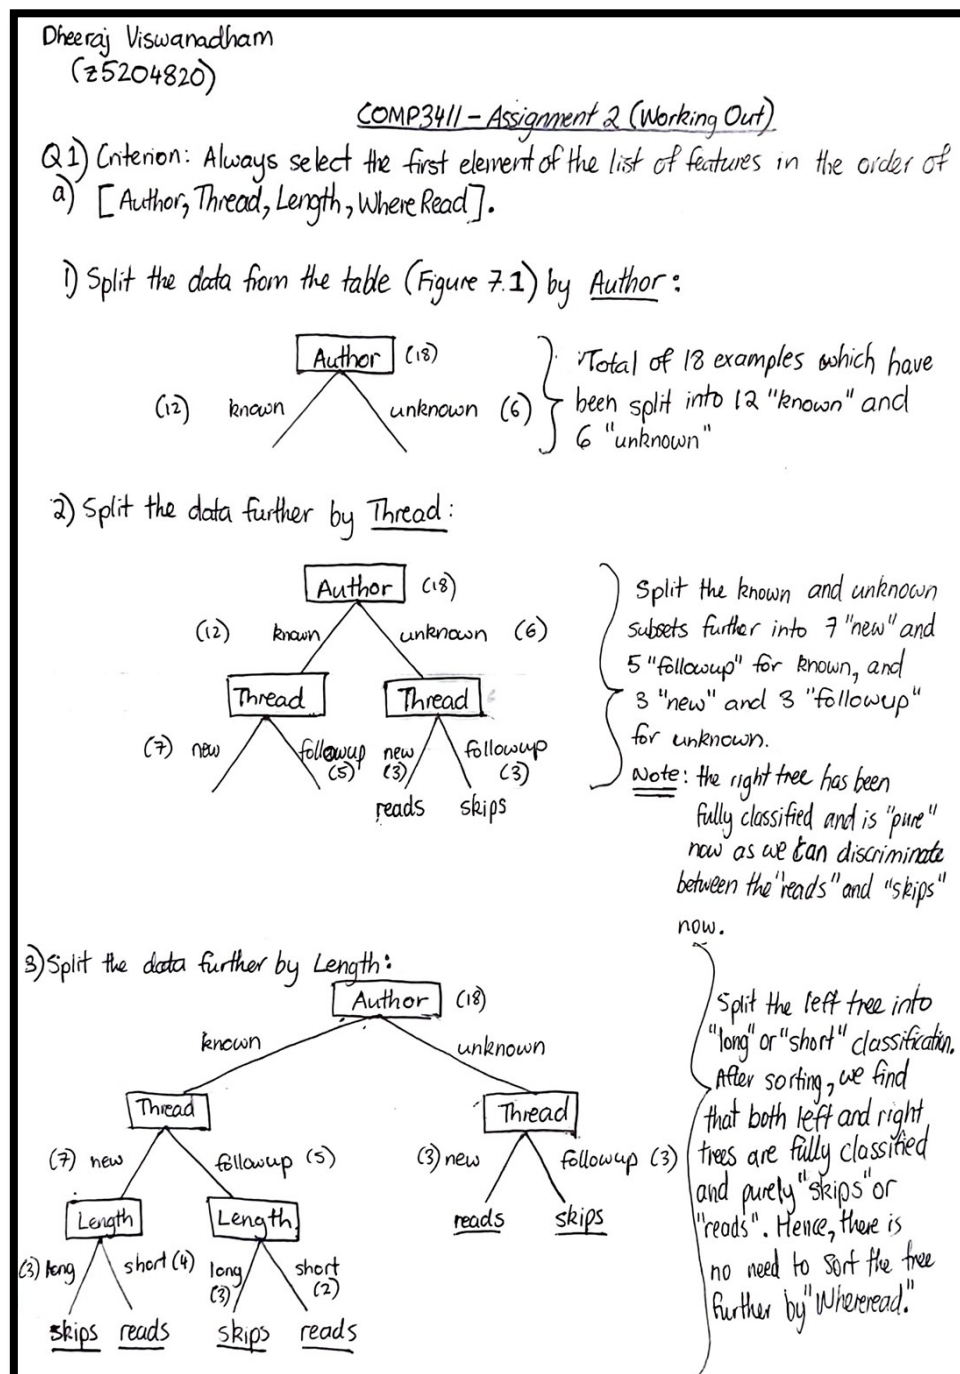 Dheeraj Viswanadham
(z5204820)
COMP3411 - Assignment 2 (Working Out)
Q1) Criterion: Always select the first element of the list of features in the order of
a) [Author, Thread, Length, Where Read].
1) Split the data from the table (Figure 7.1) by Author:
Author (18)
(12) known unknown (6)
Total of 18 examples which have
been split into 12 "known" and
6 "unknown"
2) Split the data further by Thread:
Author (18)
(12) known unknown (6)
Thread Thread
(7) new followup (5) new (3) followup (3)
reads skips
Split the known and unknown
subsets further into 7 "new" and
5 "followup" for known, and
3 "new" and 3 "followup"
for unknown.
Note: the right tree has been
fully classified and is "pure"
now as we can discriminate
between the "reads" and "skips"
now.
3) Split the data further by Length:
Author (18)
known unknown
Thread Thread
(7) new followup (5) (3) new followup (3)
Length Length reads skips
(3) long short (4) long (3) short (2)
skips reads skips reads
Split the left tree into
"long" or "short" classification.
After sorting, we find
that both left and right
trees are fully classified
and purely "skips" or
"reads". Hence, there is
no need to sort the tree
further by "Whereread."